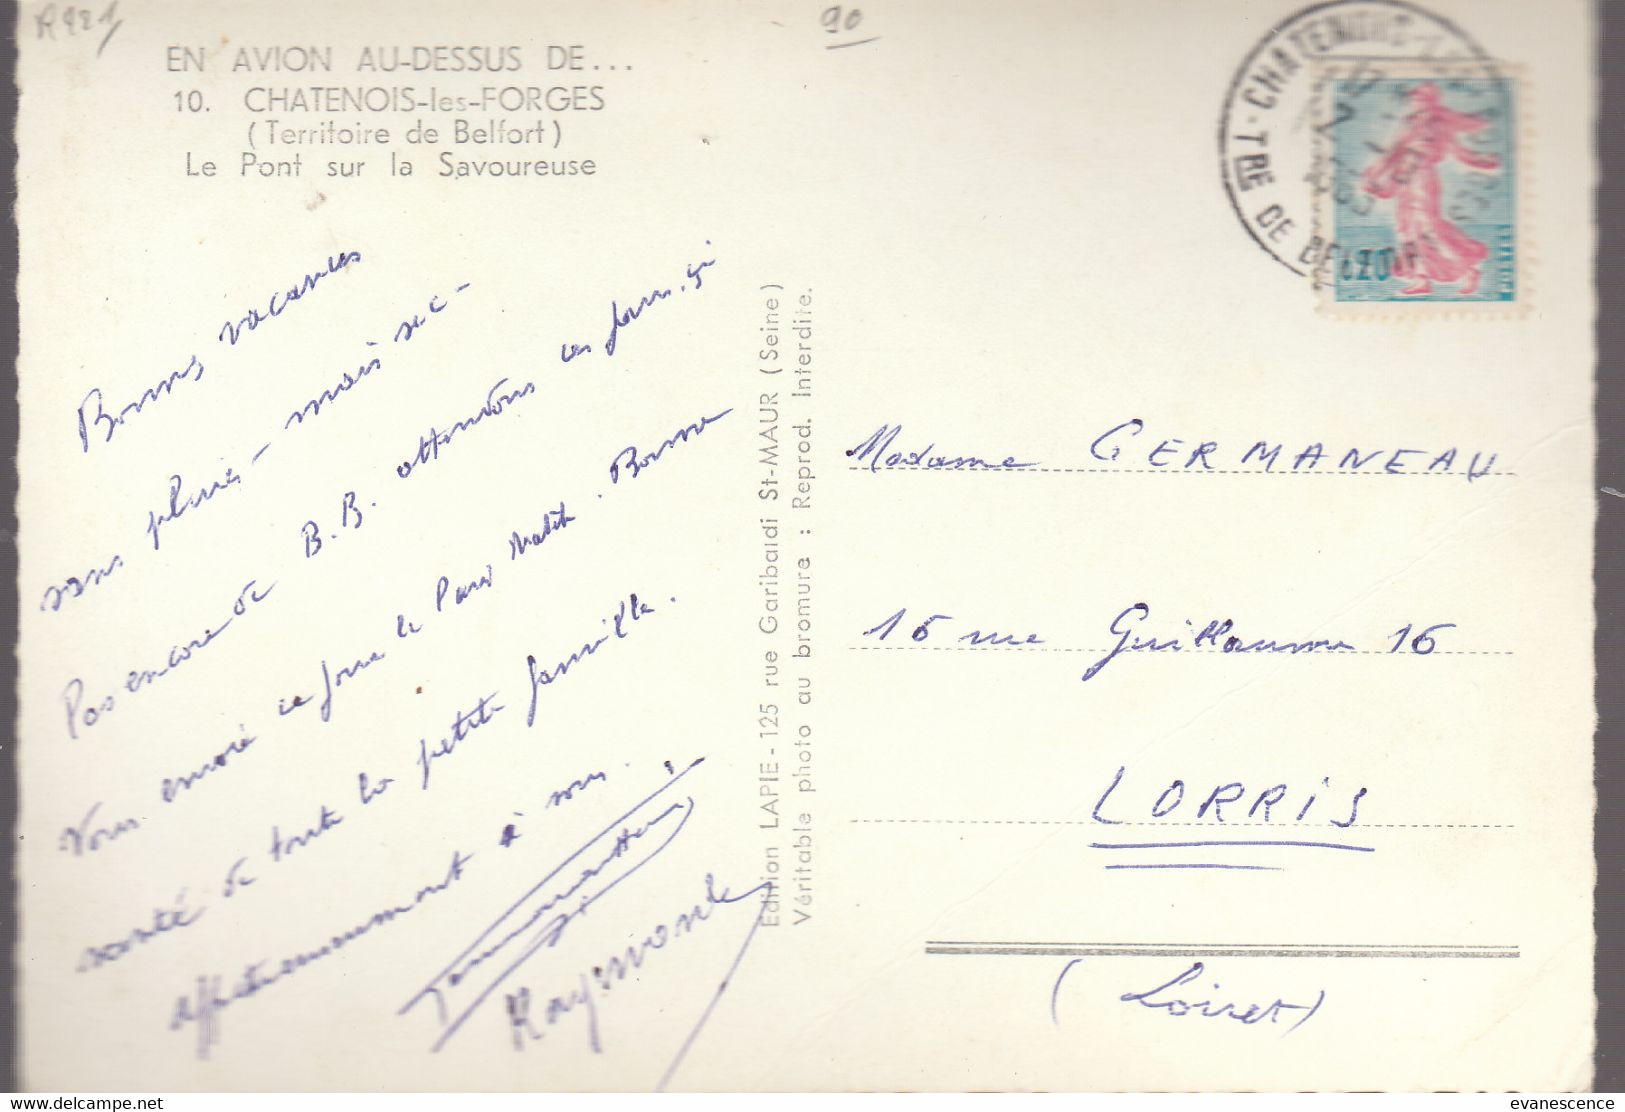 R921
90
EN AVION AU-DESSUS DE...
10. CHATENOIS-les-FORGES
(Territoire de Belfort)
Le Pont sur la Savoureuse
CHATENOIS-LES-FORGES
TRE DE BELFORT
0,20
POSTES
Bonnes vacances
sans pluie - mais sec -
Pas encore de B.B. attendons ces jours-ci
Vous envoie ce jour le Bonne
santé à toute la petite famille.
affectueusement à vous.
Raymonde
Edition LAPIE - 125 rue Garibaldi St-MAUR (Seine)
Véritable photo au bromure : Reprod. Interdite.
Madame GERMANEAU
16 rue Guillaume 16
LORRIS
(Loiret)
evanescence